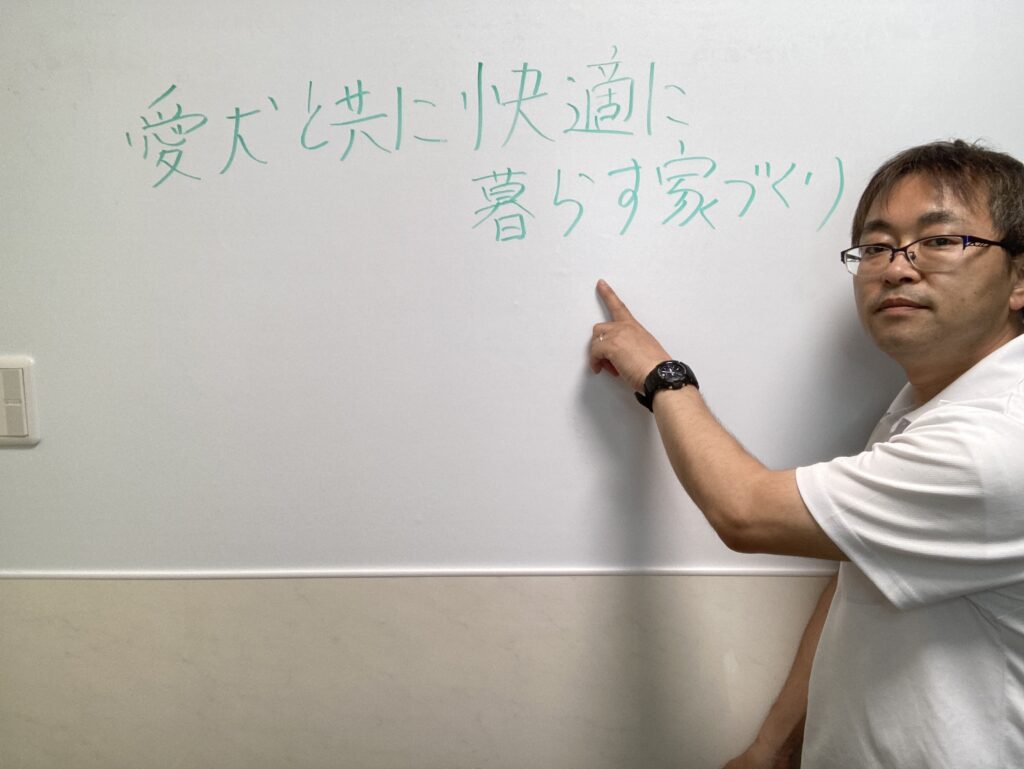 愛犬と共に快適に
暮らす家づくり